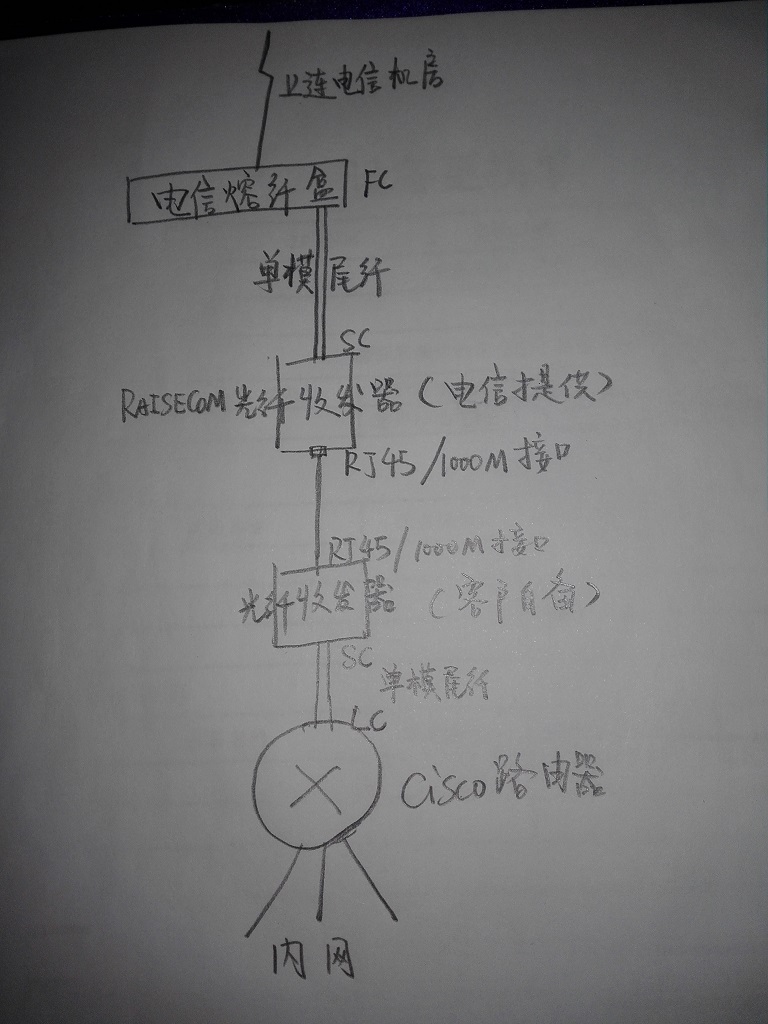 上连电信机房
电信熔纤盒 FC
单模尾纤
SC
RAISECOM光纤收发器（电信提供）
RJ45/1000M接口
RJ45/1000M接口
光纤收发器（客户自备）
SC
单模尾纤
LC
Cisco路由器
内网